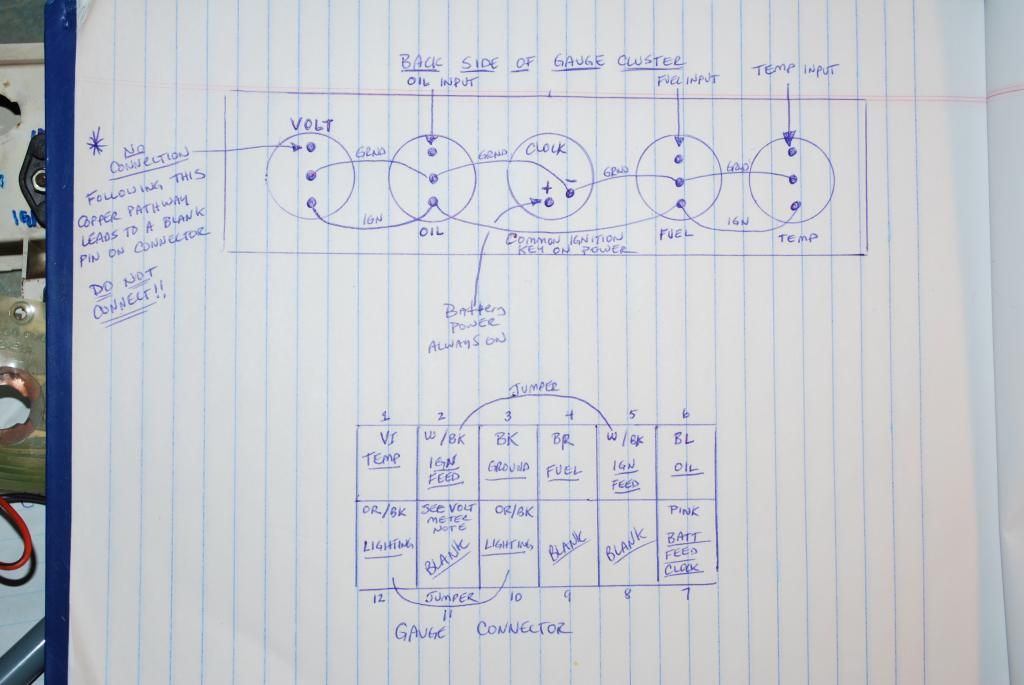 BACK SIDE OF GAUGE CLUSTER
OIL INPUT
FUEL INPUT
TEMP INPUT
VOLT
CLOCK
GRND
GRND
GRND
GRND
+
-
IGN
IGN
OIL
COMMON IGNITION
KEY ON POWER
FUEL
TEMP
* NO
CONNECTION
FOLLOWING THIS
COPPER PATHWAY
LEADS TO A BLANK
PIN ON CONNECTOR
DO NOT
CONNECT!!
Battery
POWER
ALWAYS ON
JUMPER
1 2 3 4 5 6
VI
TEMP
W/BK
IGN
FEED
BK
GROUND
BR
FUEL
W/BK
IGN
FEED
BL
OIL
OR/BK
LIGHTING
SEE VOLT
METER
NOTE
BLANK
OR/BK
LIGHTING
BLANK
BLANK
PINK
BATT
FEED
CLOCK
12 JUMPER 10 9 8 7
11
GAUGE CONNECTOR